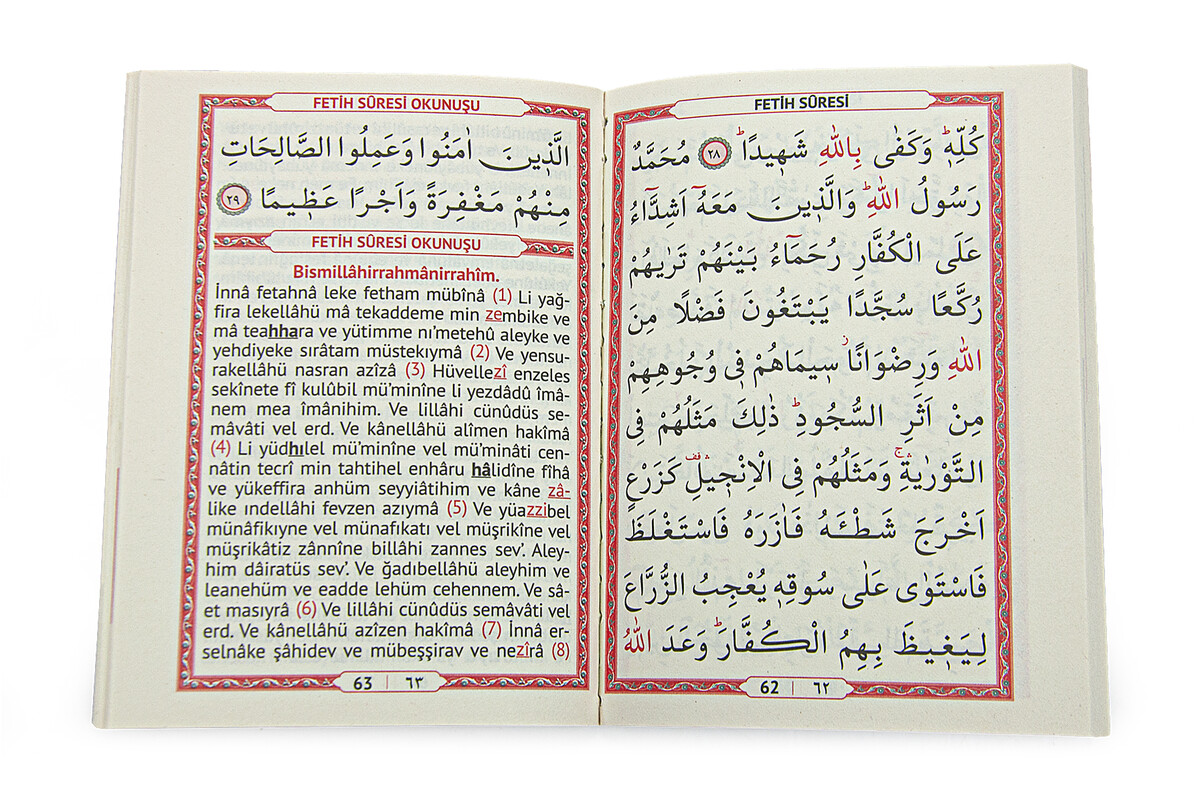 FETİH SÛRESİ
كُلِّهِۜ وَكَفٰى بِاللّٰهِ شَه۪يدًاۜ ﴿٢٨﴾ مُحَمَّدٌ
رَسُولُ اللّٰهِۜ وَالَّذ۪ينَ مَعَهُٓ اَشِدَّٓاءُ
عَلَى الْكُفَّارِ رُحَمَٓاءُ بَيْنَهُمْ تَرٰيهُمْ
رُكَّعًا سُجَّدًا يَبْتَغُونَ فَضْلًا مِنَ
اللّٰهِ وَرِضْوَانًاۘ س۪يمَاهُمْ ف۪ي وُجُوهِهِمْ
مِنْ اَثَرِ السُّجُودِۜ ذٰلِكَ مَثَلُهُمْ فِي
التَّوْرٰيةِۚۛ وَمَثَلُهُمْ فِي الْاِنْج۪يلِ۠ۛ كَزَرْعٍ
اَخْرَجَ شَطْـَٔهُ فَاٰزَرَهُ فَاسْتَغْلَظَ
فَاسْتَوٰى عَلٰى سُوقِه۪ يُعْجِبُ الزُّرَّاعَ
لِيَغ۪يظَ بِهِمُ الْكُفَّارَۜ وَعَدَ اللّٰهُ
62 | ٦٢
FETİH SÛRESİ OKUNUŞU
الَّذ۪ينَ اٰمَنُوا وَعَمِلُوا الصَّالِحَاتِ
مِنْهُمْ مَغْفِرَةً وَاَجْرًا عَظ۪يمًا ﴿٢٩﴾
FETİH SÛRESİ OKUNUŞU
Bismillâhirrahmânirrahîm.
İnnâ fetahnâ leke fetham mübînâ (1) Li yağ-
fira lekellâhü mâ tekaddeme min zembike ve
mâ teahhara ve yütimme nı’metehû aleyke ve
yehdiyeke sırâtam müstekıymâ (2) Ve yensu-
rakellâhü nasran azîzâ (3) Hüvellezî enzeles
sekînete fî kulûbil mü’minîne li yezdâdû îmâ-
nem mea îmânihim. Ve lillâhi cünûdüs se-
mâvâti vel erd. Ve kânellâhü alîmen hakîmâ
(4) Li yüdhılel mü’minîne vel mü’minâti cen-
nâtin tecrî min tahtihel enhâru hâlidîne fîhâ
ve yükeffira anhüm seyyiâtihim ve kâne zâ-
like ındellâhi fevzen azıymâ (5) Ve yüazzibel
münâfikıyne vel münafıkatı vel müşrikîne vel
müşrikâtiz zânnîne billâhi zannes sev’. Aley-
him dâiratüs sev’. Ve ğadıbellâhü aleyhim ve
leanehüm ve eadde lehüm cehennem. Ve sâ-
et masıyrâ (6) Ve lillâhi cünûdüs semâvâti vel
erd. Ve kânellâhü azîzen hakîmâ (7) İnnâ er-
selnâke şâhidev ve mübeşşirav ve nezîrâ (8)
63 | ٦٣